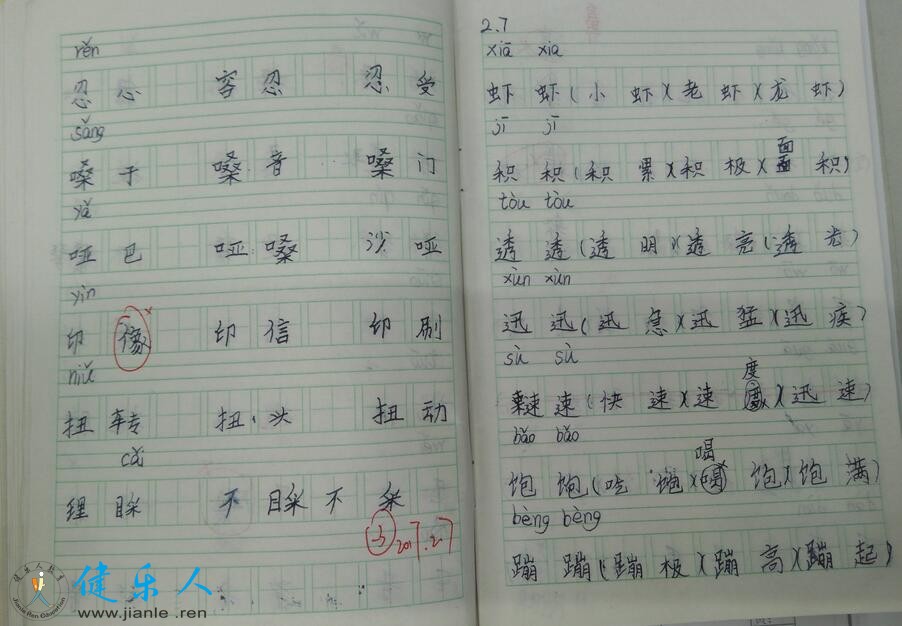 rěn
忍 忍 容 忍 忍 受
sǎng
嗓 子 嗓 音 嗓 门
yǎ
哑 巴 哑 嗓 沙 哑
yìn
印 像 印 信 印 刷
niǔ
扭 转 扭 头 扭 动
cǎi
理 睬 不 睬 不 采
2017.2.7
健乐人
www.jianle.ren
2.7
xiā xia
虾 虾(小 虾)(老 虾)(龙 虾)
jī jī
积 积(积 累)(积 极)(面 积)
tòu tòu
透 透(透 明)(透 亮)(透 光)
xùn xùn
迅 迅(迅 急)(迅 猛)(迅 疾)
sù sù
速 速(快 速)(速 度)(迅 速)
bǎo bǎo
饱 饱(吃 饱)(喝 饱)(饱 满)
bèng bèng
蹦 蹦(蹦 极)(蹦 高)(蹦 起)